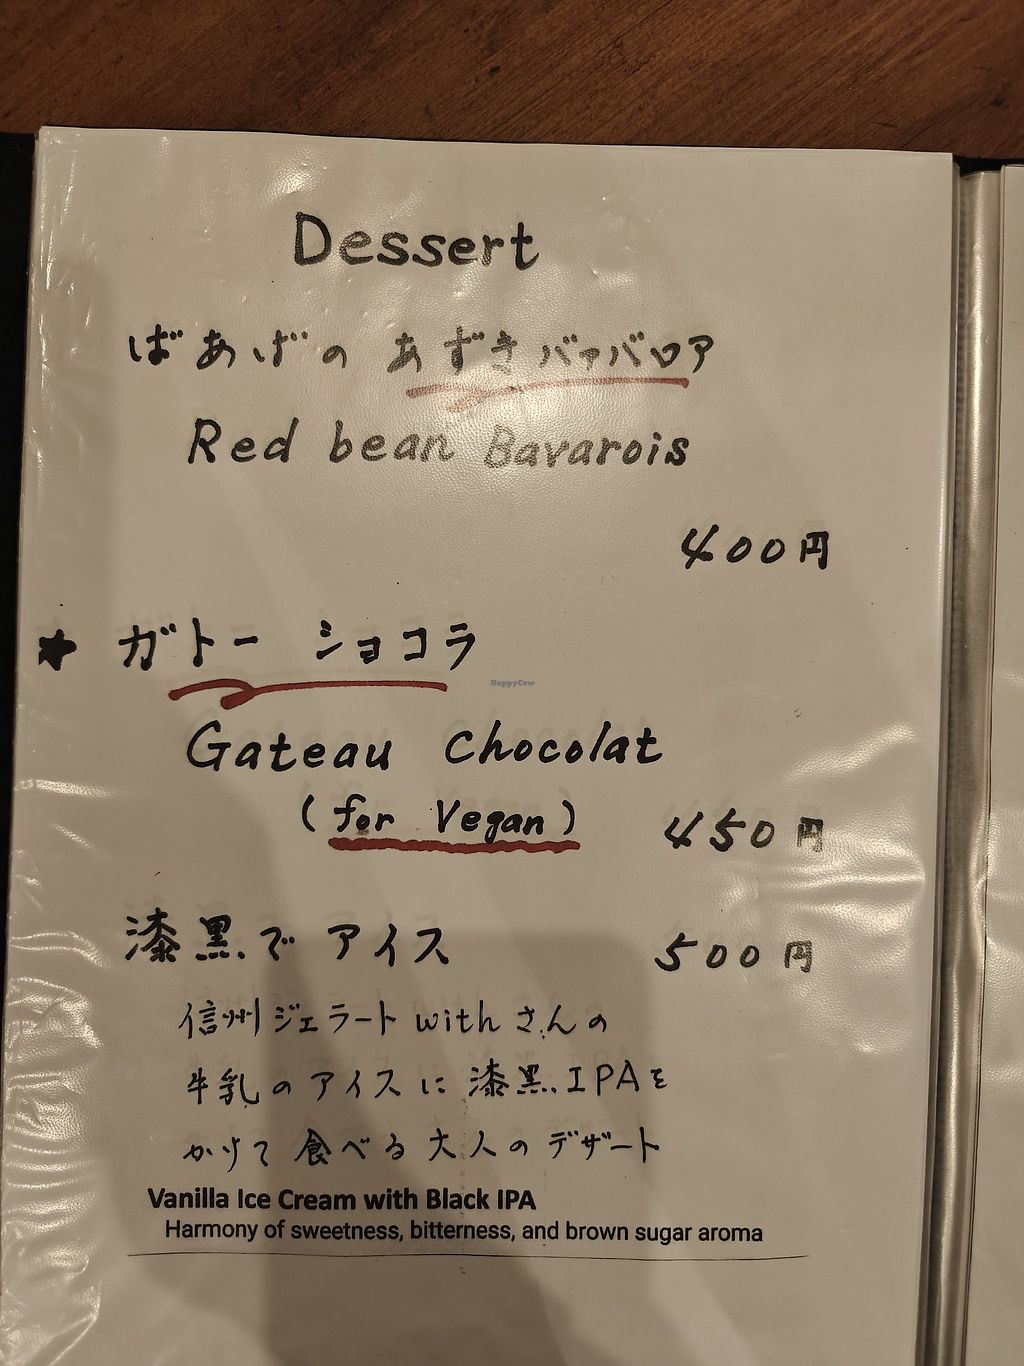 Dessert
ばあばの あずきババロア
Red bean Bavarois
400円
★ ガトー ショコラ
HappyCow
Gateau Chocolat
(for Vegan) 450円
漆黒でアイス 500円
信州ジェラートwithさんの
牛乳のアイスに漆黒IPAを
かけて食べる大人のデザート
Vanilla Ice Cream with Black IPA
Harmony of sweetness, bitterness, and brown sugar aroma